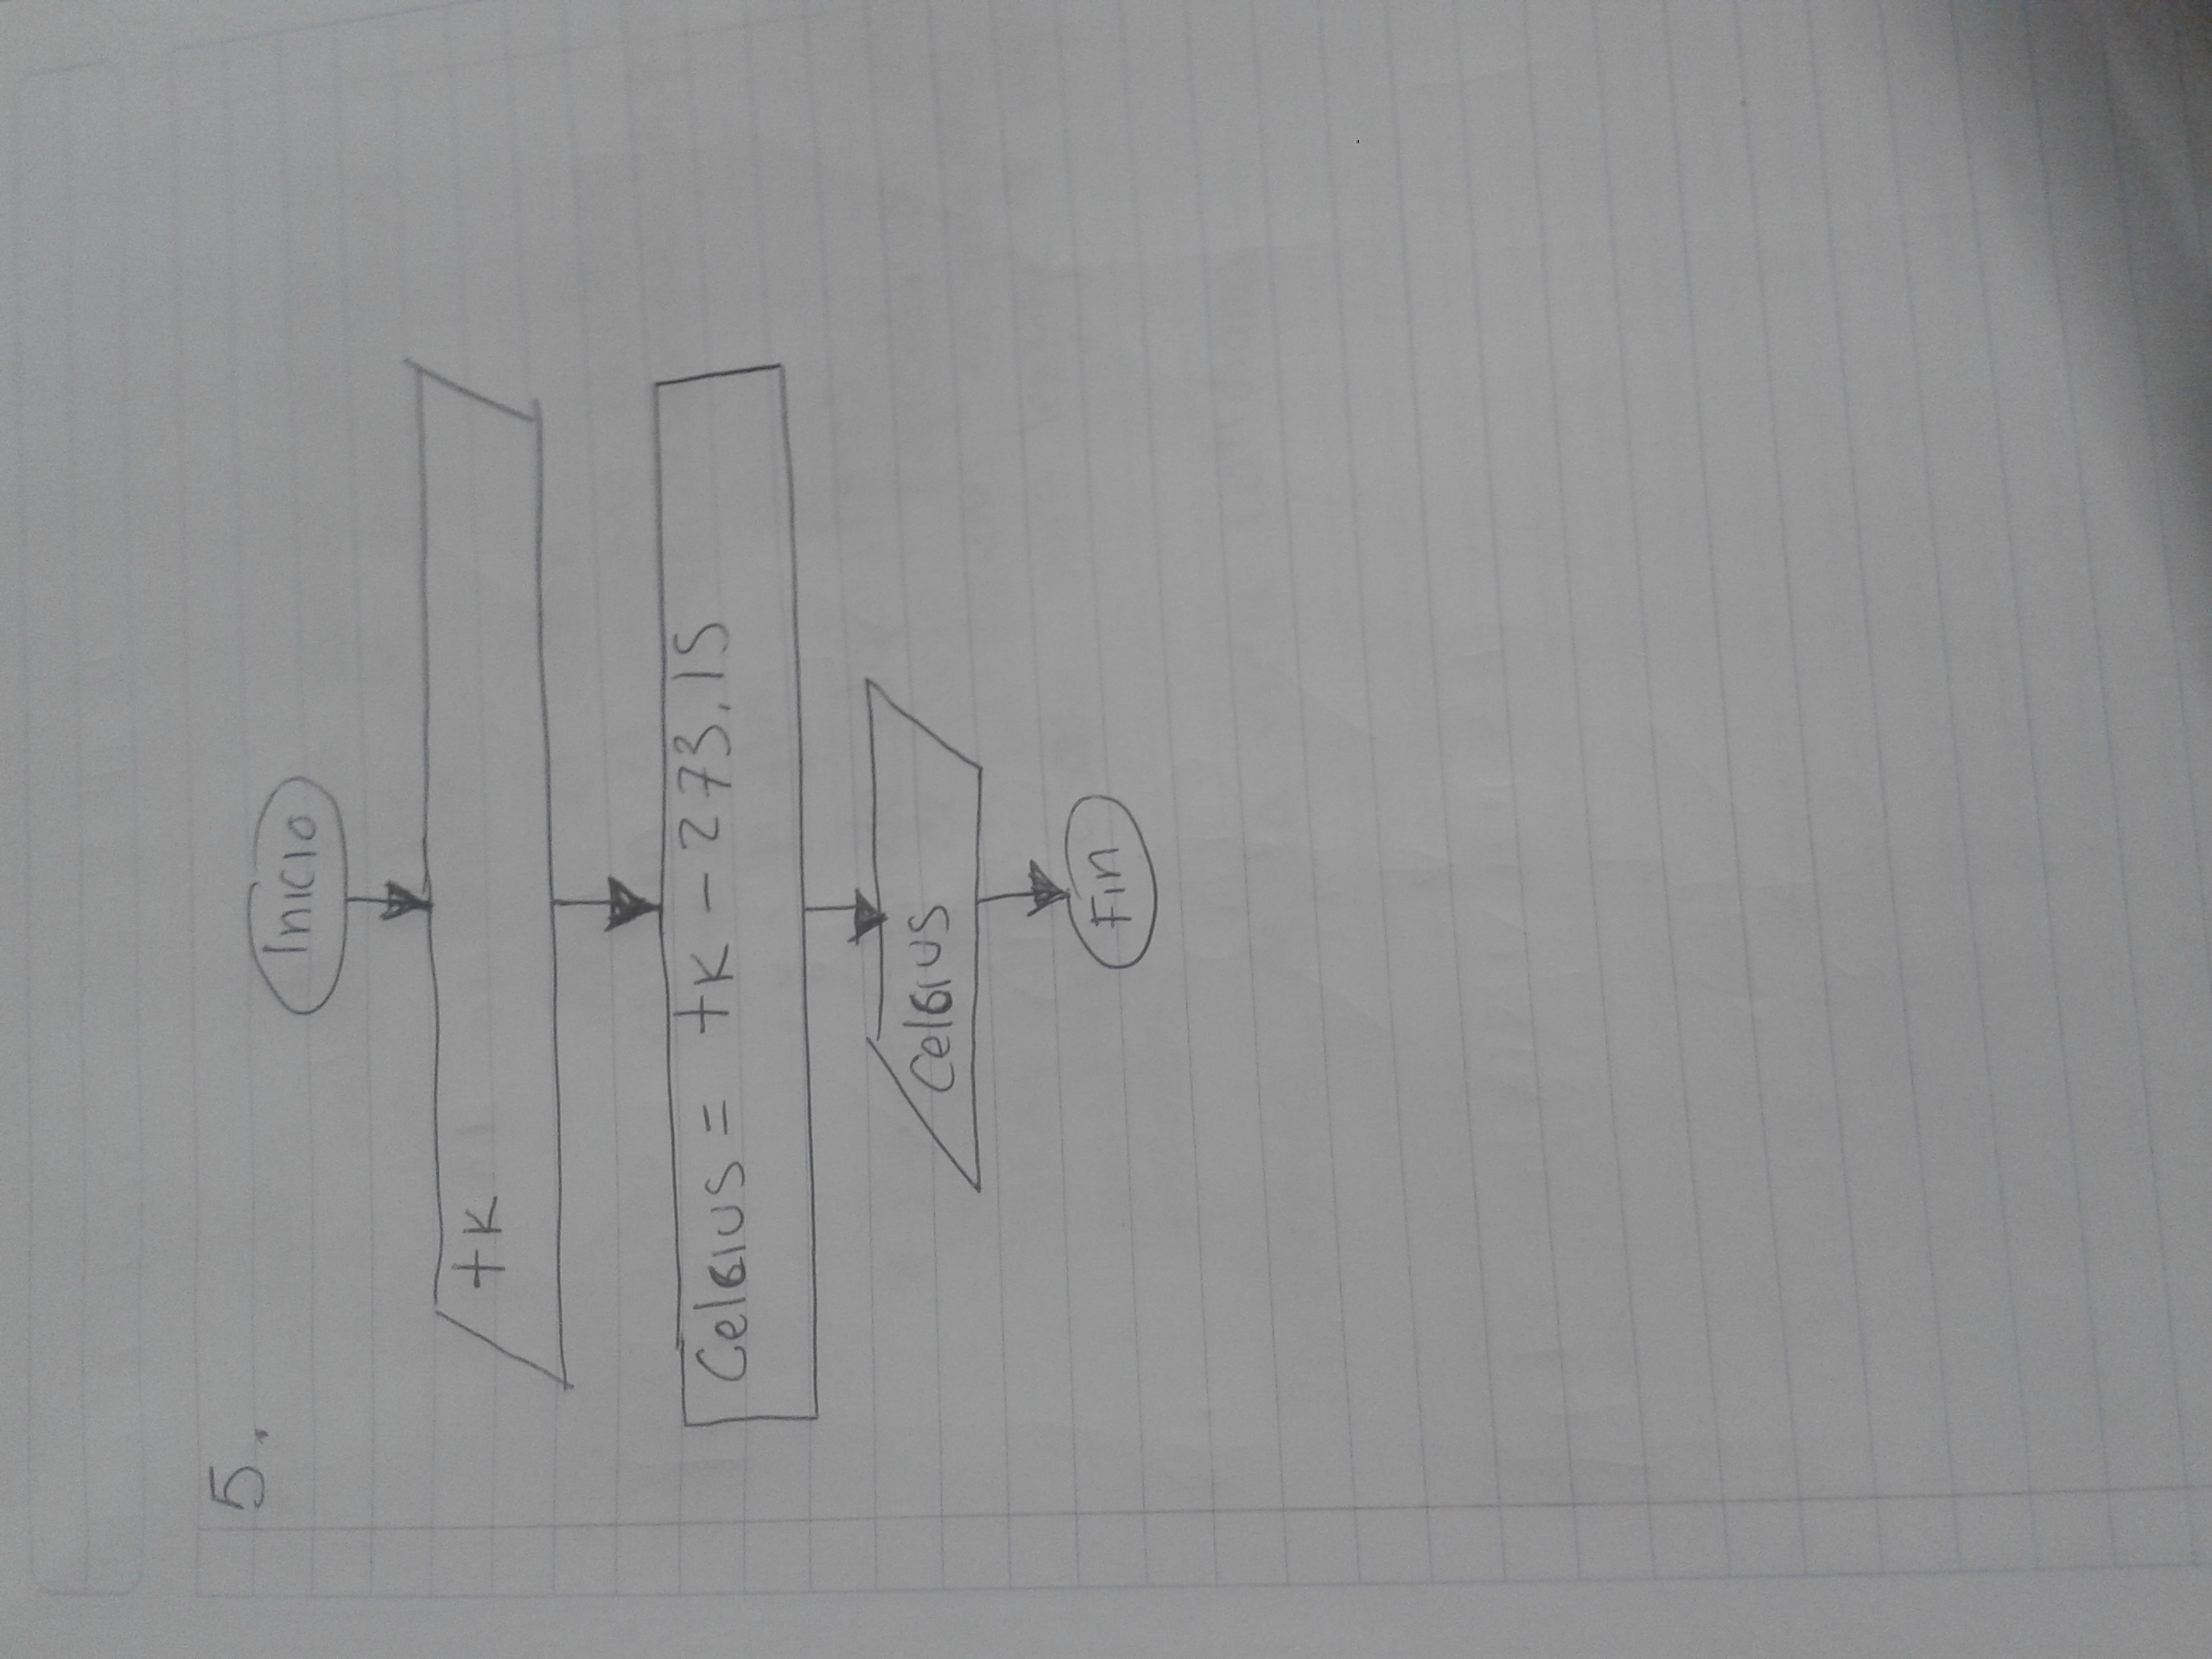 5.
Inicio
tK
Celsius = tK - 273.15
Celsius
Fin